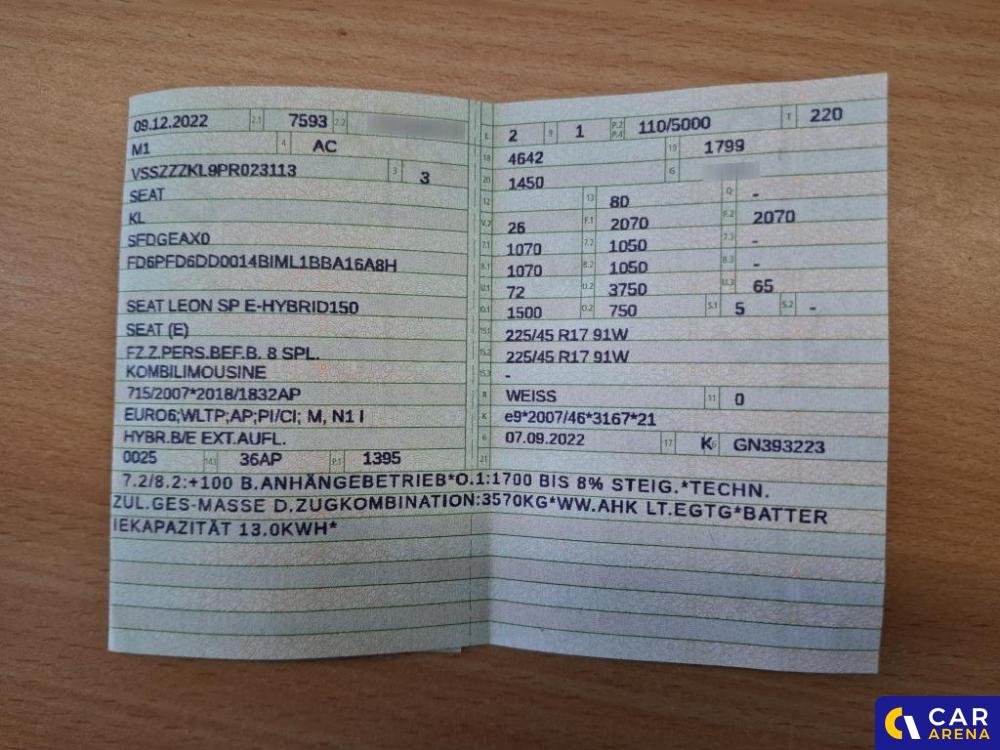 09.12.2022 2.1 7593 2.2
M1 4 AC
VSSZZZKL9PR023113 3 3
SEAT
KL
SFDGEAX0
FD6PFD6DD0014BIML1BBA16A8H
SEAT LEON SP E-HYBRID150
SEAT (E)
FZ.Z.PERS.BEF.B. 8 SPL.
KOMBILIMOUSINE
715/2007*2018/1832AP
EURO6;WLTP;AP;PI/CI; M, N1 I
HYBR.B/E EXT.AUFL.
0025 14.1 36AP P.1 1395
L 2 9 1 P.2 P.4 110/5000 T 220
18 4642 19 1799
20 1450 G
12 13 80 Q -
V.7 26 F.1 2070 F.2 2070
7.1 1070 7.2 1050 7.3 -
8.1 1070 8.2 1050 8.3 -
U.1 72 U.2 3750 U.3 65
O.1 1500 O.2 750 S.1 5 S.2 -
15.1 225/45 R17 91W
15.2 225/45 R17 91W
15.3 -
R WEISS 11 0
K e9*2007/46*3167*21
6 07.09.2022 17 K 16 GN393223
21
7.2/8.2:+100 B.ANHÄNGEBETRIEB*O.1:1700 BIS 8% STEIG.*TECHN.
ZUL.GES-MASSE D.ZUGKOMBINATION:3570KG*WW.AHK LT.EGTG*BATTER
IEKAPAZITÄT 13.0KWH*
CAR
ARENA